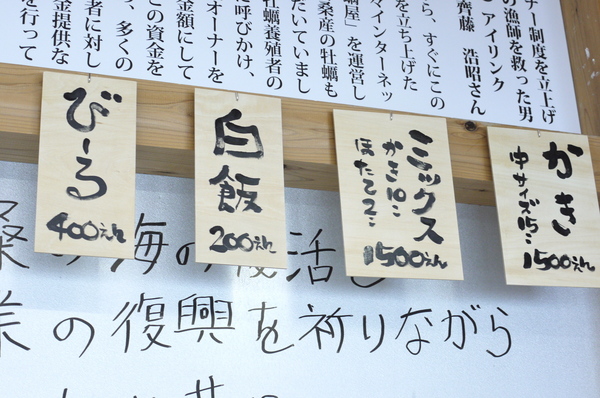 ナー制度を立上げ
の漁師を救った男
アイリンク
齊藤 浩昭さん
ら、すぐにこの
を立ち上げた
マインターネッ
屋」を運営し
桑産の牡蠣も
だいていまし
牡蠣養殖者の
に呼びかけ、
オーナーを
金額にして
、多くの
この資金を
者に対し
金提供な
を行って
かき
中サイズ15こ
1500えん
ミックス
かき10こ
ほたて2こ
1500えん
白飯
200えん
びーる
400えん
の海の復活
の復興を祈りながら